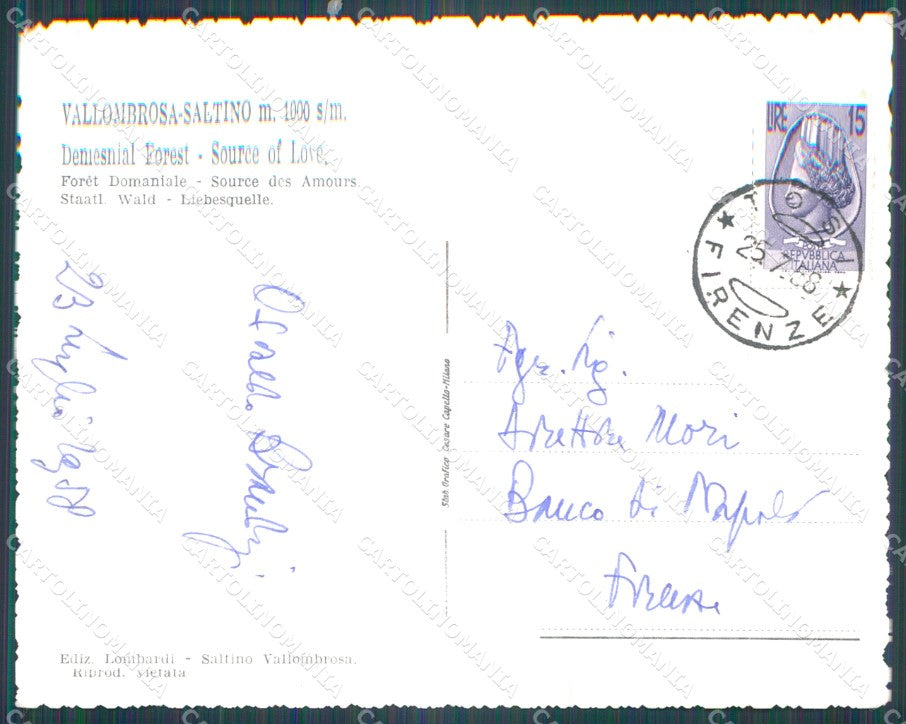 VALLOMBROSA-SALTINO m. 1000 s/m.
Demesnial Forest - Source of Love.
Forêt Domaniale - Source des Amours.
Staatl. Wald - Liebesquelle.
LIRE 15
REPVBBLICA
ITALIANA
TOSI
25.7.58
FIRENZE
23 luglio 1958
Osvaldo
Stab Grafico Cesare Capello-Milano
Egr. Sig.
Direttore Mori
Banco di Napoli
Firenze
Ediz. Lombardi - Saltino Vallombrosa.
Riprod. vietata
CARTOLINOMANIA